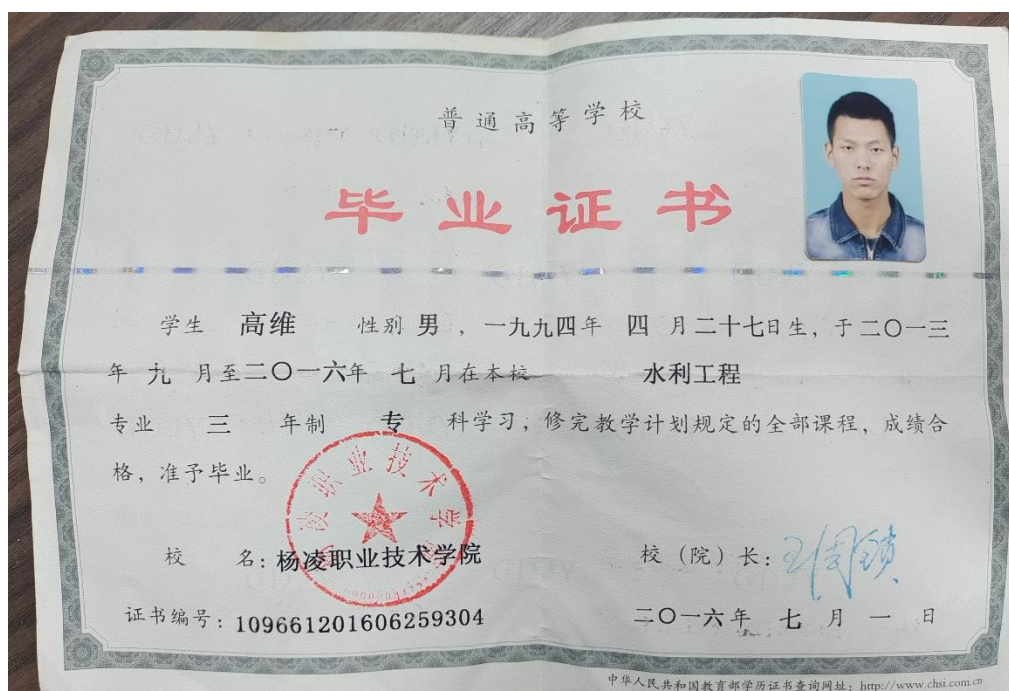 普通高等学校
毕业证书
学生 高维 性别 男 ，一九九四年 四 月二十七日生，于二〇一三
年 九 月至二〇一六年 七 月在本校 水利工程
专业 三 年制 专 科学习，修完教学计划规定的全部课程，成绩合
格，准予毕业。
杨凌职业技术学院
校 名：杨凌职业技术学院 校（院）长：
证书编号：109661201606259304 二〇一六年 七 月 一 日
中华人民共和国教育部学历证书查询网址：http://www.chsi.com.cn